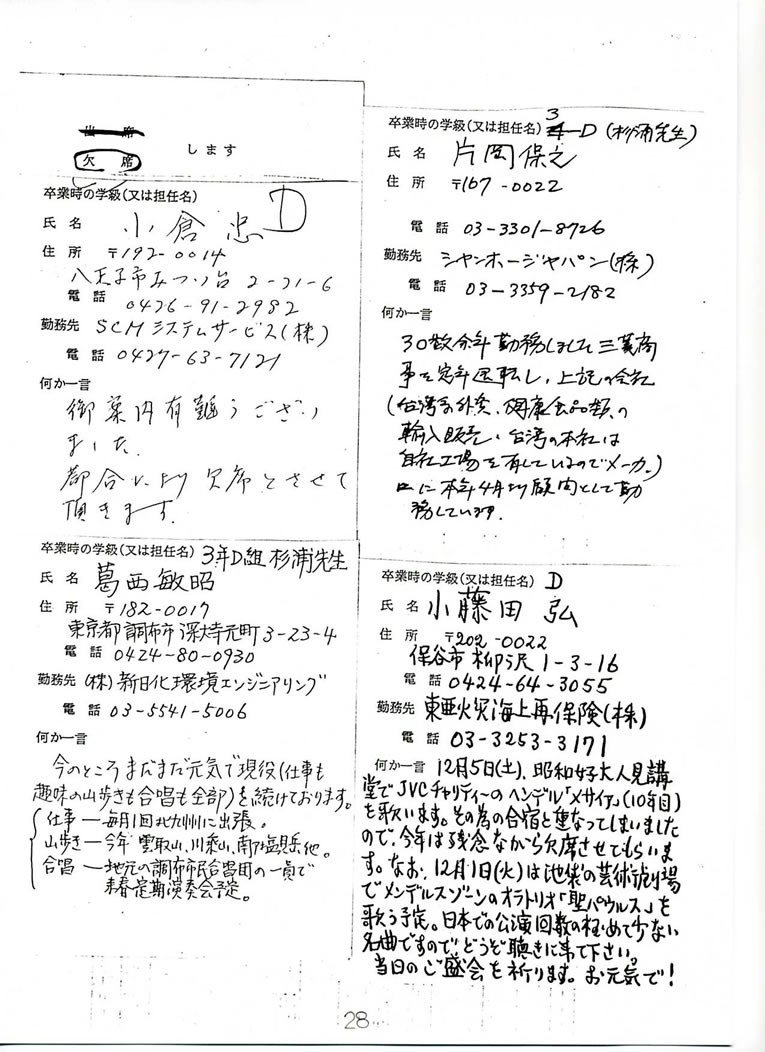 出席
欠席 します
卒業時の学級(又は担任名) D
氏名 小倉 忠
住所 〒192-0014
八王子市みつい台 2-21-6
電話 0426-91-2982
勤務先 SCMシステムサービス(株)
電話 0427-63-7121
何か一言
御案内有難うござい
ました.
都合により欠席とさせて
頂きます.
卒業時の学級(又は担任名) 3年D組 杉浦先生
氏名 葛西敏昭
住所 〒182-0017
東京都調布市深大寺元町3-23-4
電話 0424-80-0930
勤務先 (株)新日化環境エンジニアリング
電話 03-5541-5006
何か一言
今のところまだまだ元気で現役(仕事も
趣味の山歩きも合唱も全部)を続けております。
仕事 — 毎月1回北九州に出張。
山歩き — 今年 雲取山、川乗山、南塩見岳他。
合唱 — 地元の調布市民合唱団の一員で
来春定期演奏会予定。
卒業時の学級(又は担任名) 3-D (杉浦先生)
氏名 片岡保之
住所 〒167-0022
電話 03-3301-8726
勤務先 シャンホージャパン(株)
電話 03-3359-2182
何か一言
30数余年勤務しました三菱商
事を定年退転し、上記の会社
(台湾系外資、健康食品類の
輸入販売、台湾の本社は
自社工場を有しているのでメーカー)
に本年4月より顧問として勤
務しています.
卒業時の学級(又は担任名) D
氏名 小藤田 弘
住所 〒202-0022
保谷市柳沢1-3-16
電話 0424-64-3055
勤務先 東亜火災海上再保険(株)
電話 03-3253-3171
何か一言 12月5日(土)、昭和女子大人見講
堂でJVCチャリティーのヘンデル「メサイア」(10年目)
を歌います。その為の合宿と重なってしまいました
ので、今年は残念ながら欠席させてもらいま
す。なお、12月1日(火)は池袋の芸術劇場
でメンデルスゾーンのオラトリオ「聖パウルス」を
歌う予定。日本での公演回数の極めて少ない
名曲ですのでどうぞ聴きに来て下さい。
当日のご盛会を祈ります。お元気で!
28